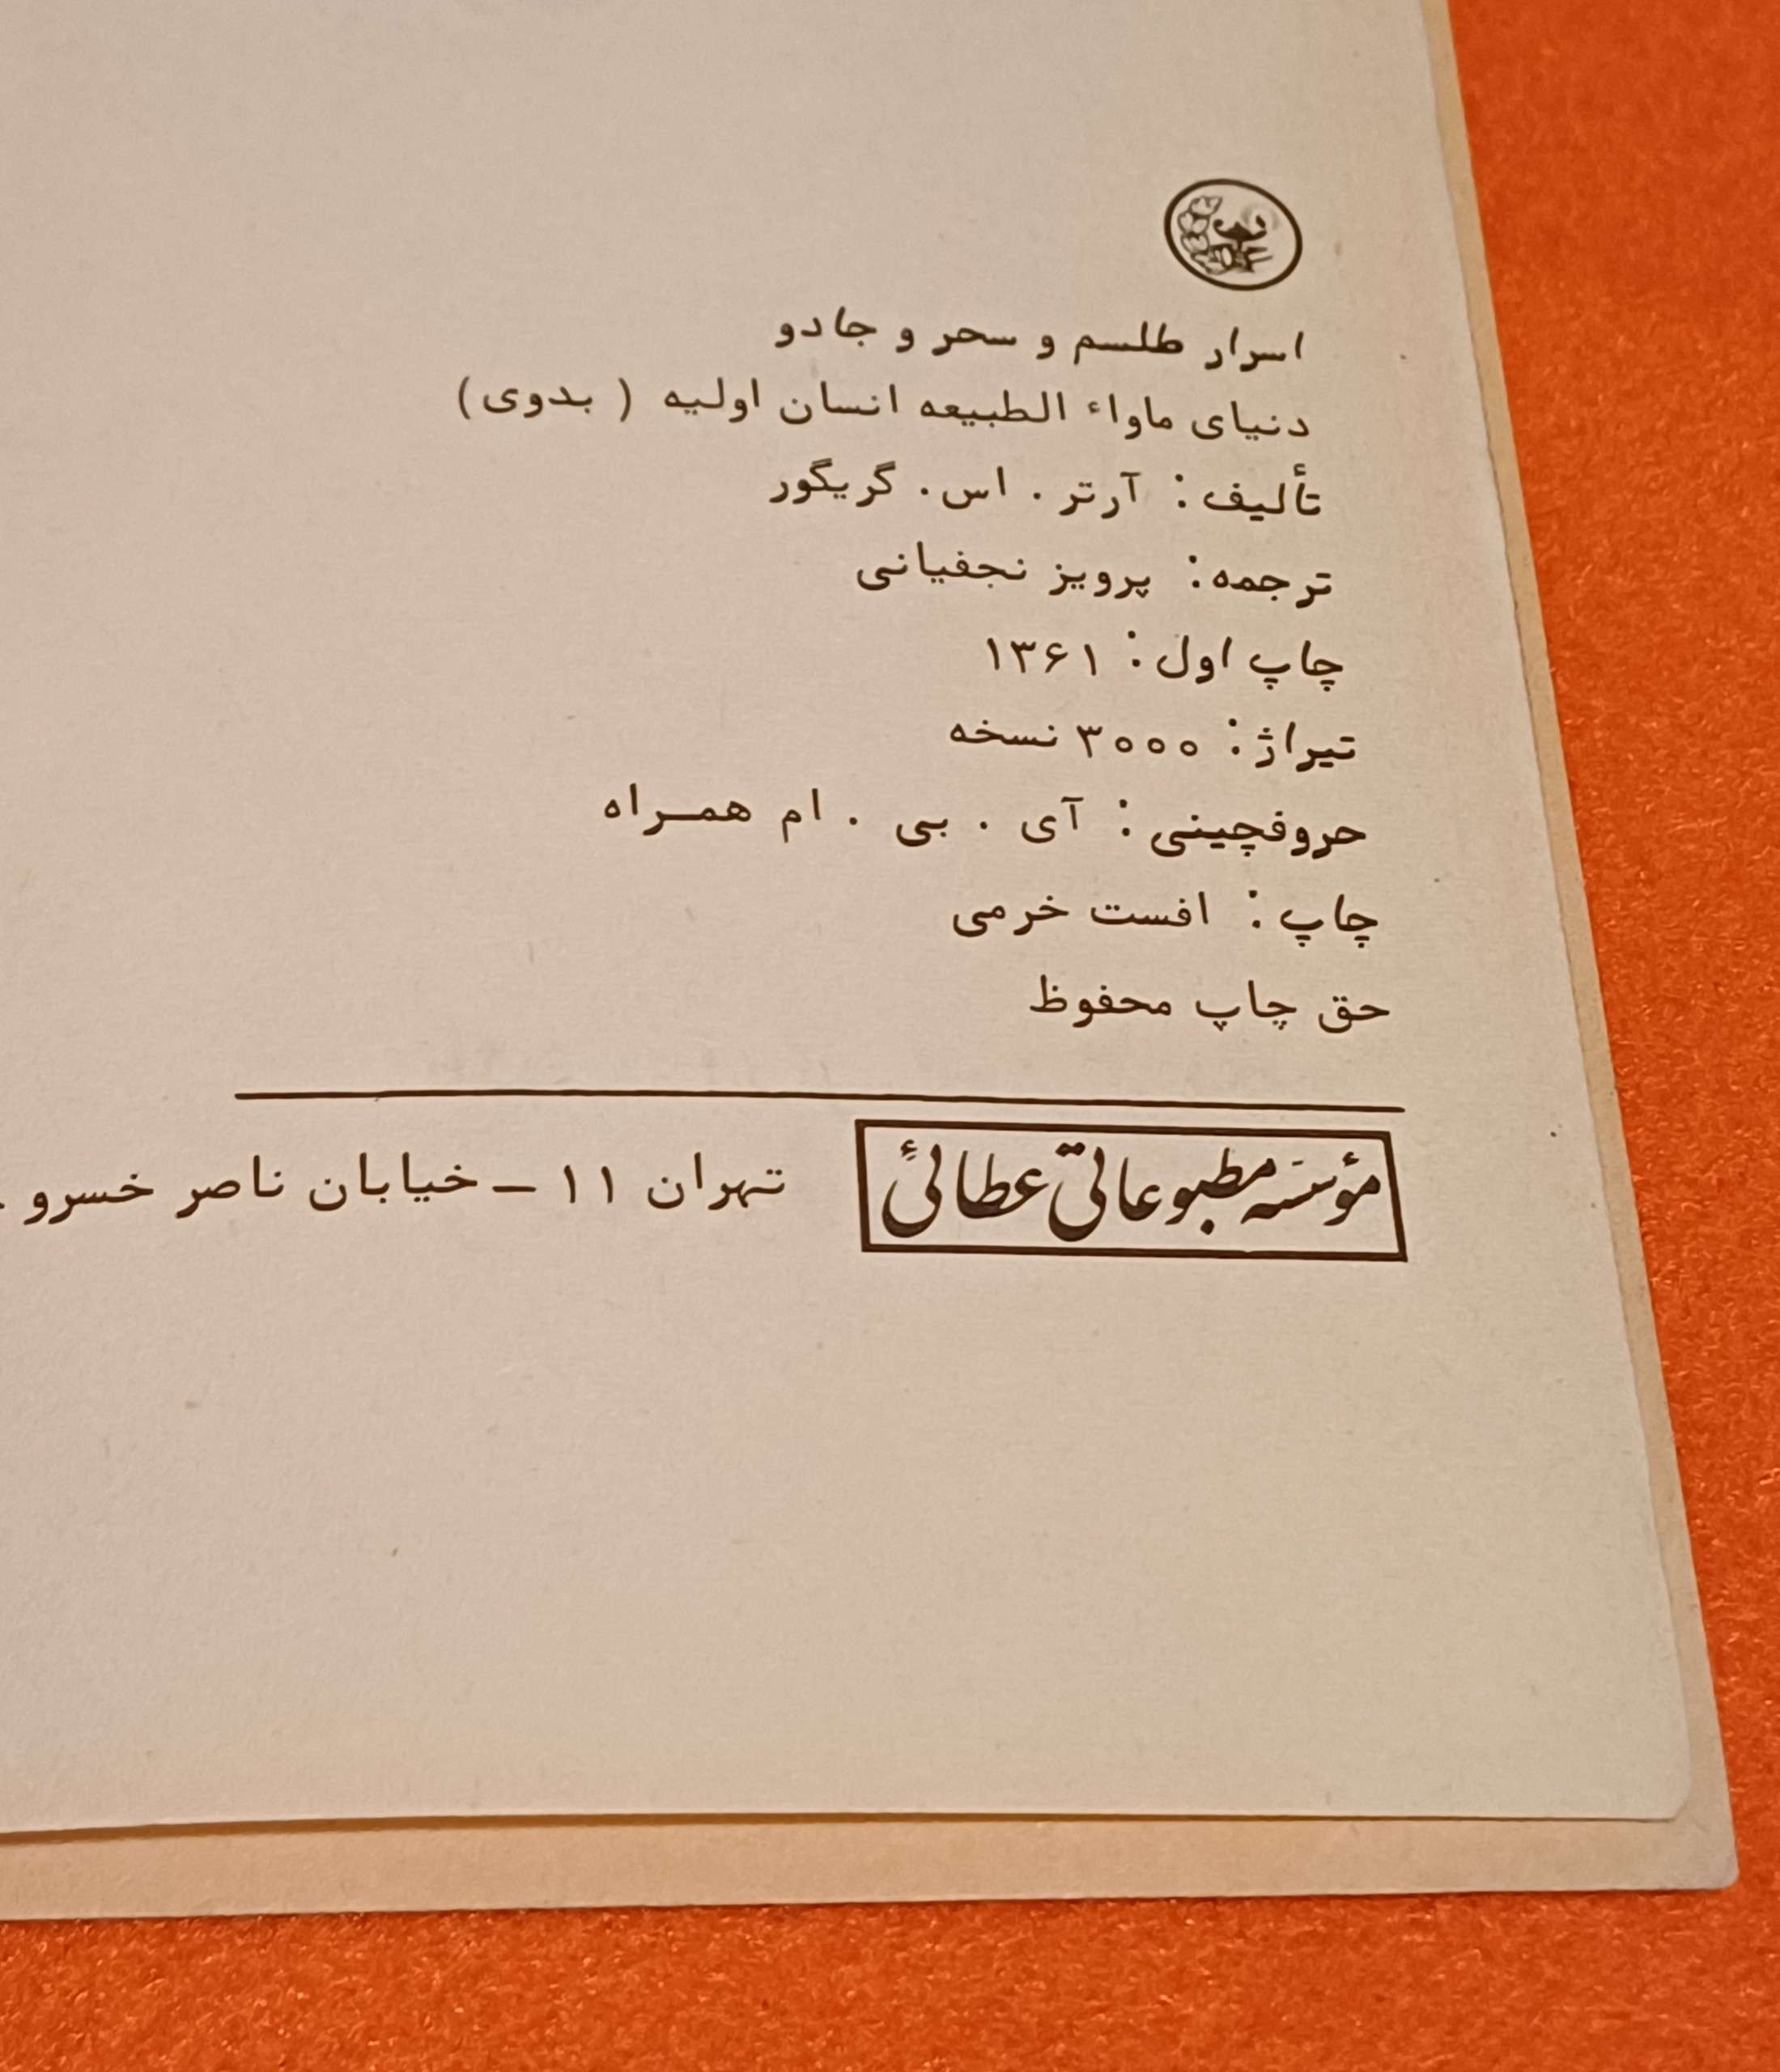 اسرار طلسم و سحر و جادو
دنیای ماواء الطبیعه انسان اولیه ( بدوی )
تألیف : آرتر . اس . گریگور
ترجمه : پرویز نجفیانی
چاپ اول : ۱۳۶۱
تیراژ : ۳۰۰۰ نسخه
حروفچینی : آی . بی . ام همراه
چاپ : افست خرمی
حق چاپ محفوظ
مؤسسه مطبوعاتی عطائی تهران ۱۱ – خیابان ناصر خسرو